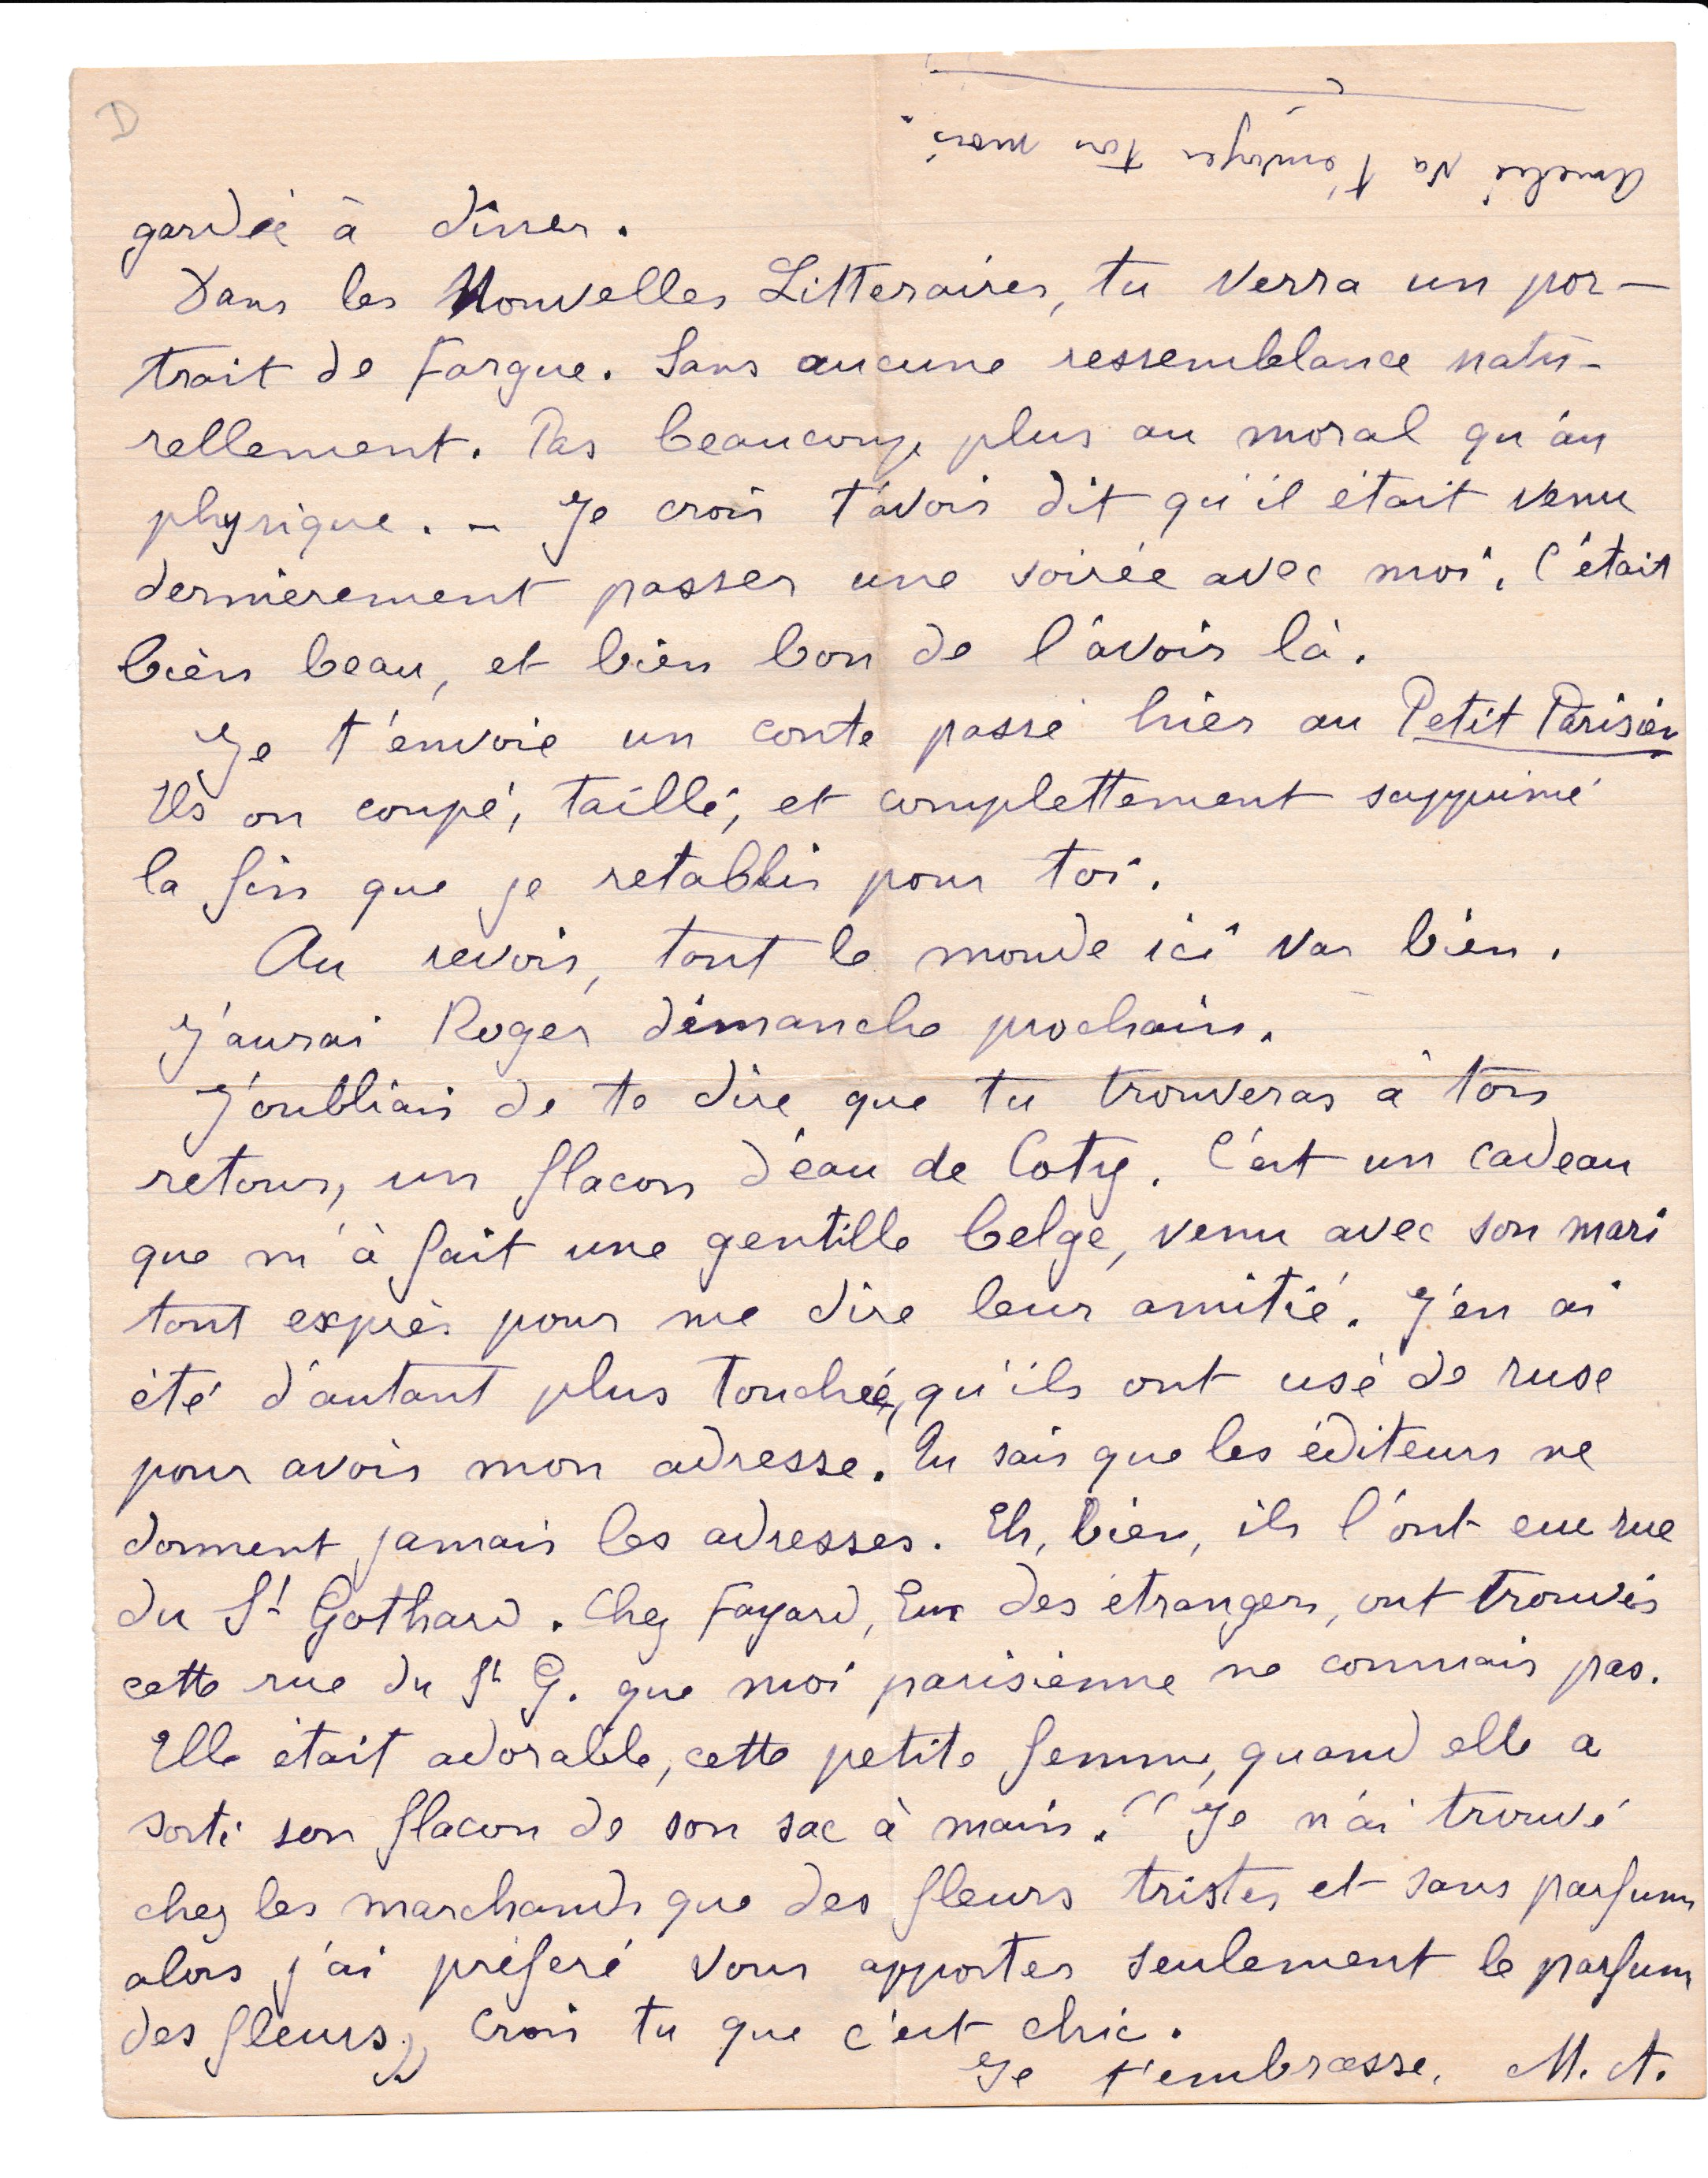 D
Amelie va t'envoyer ton mois.
gardée à dîner.
Dans les Nouvelles Litteraires, tu verra un por-
trait de Fargue. Sans aucune ressemblance natu-
rellement. Pas beaucoup plus au moral qu'au
physique. - Je crois t'avoir dit qu'il était venu
dernièrement passer une soirée avec moi. C'était
bien beau, et bien bon de l'avoir là.
Je t'envoie un conte passé hier au Petit Parisien
Ils on coupé, taillé, et complettement supprimé
la fin que je retablis pour toi.
Au revoir, tout le monde ici va bien.
J'aurai Roger dimanche prochain.
J'oubliais de te dire que tu trouveras à ton
retour, un flacon d'eau de Coty. C'est un cadeau
que m'à fait une gentille belge, venu avec son mari
tout exprès pour me dire leur amitié. J'en ai
été d'autant plus touchée, qu'ils ont usé de ruse
pour avoir mon adresse. Tu sais que les éditeurs ne
donnent jamais les adresses. Eh, bien, ils l'ont eue rue
du St Gothard. Chez Fayard, Eux des étrangers, ont trouvés
cette rue du St G. que moi parisienne ne connais pas.
Elle était adorable, cette petite femme, quand elle a
sorti son flacon de son sac à main. "Je n'ai trouvé
chez les marchands que des fleurs tristes et sans parfum
alors j'ai préféré vous apporter seulement le parfum
des fleurs" Crois tu que c'est chic.
Je t'embrasse. M. A.